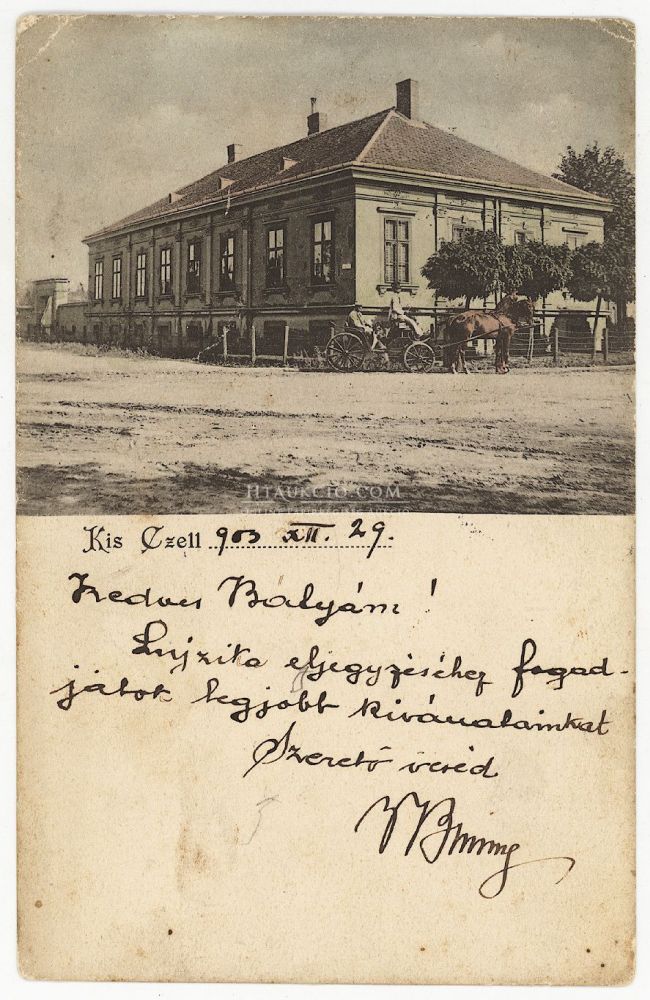 HTAUKCIO.COM
Kis Czell 903 XII. 29.
Kedves Bátyám!
Lujzika eljegyzéséhez fogad-
játok legjobb kivánatainkat
Szerető véred